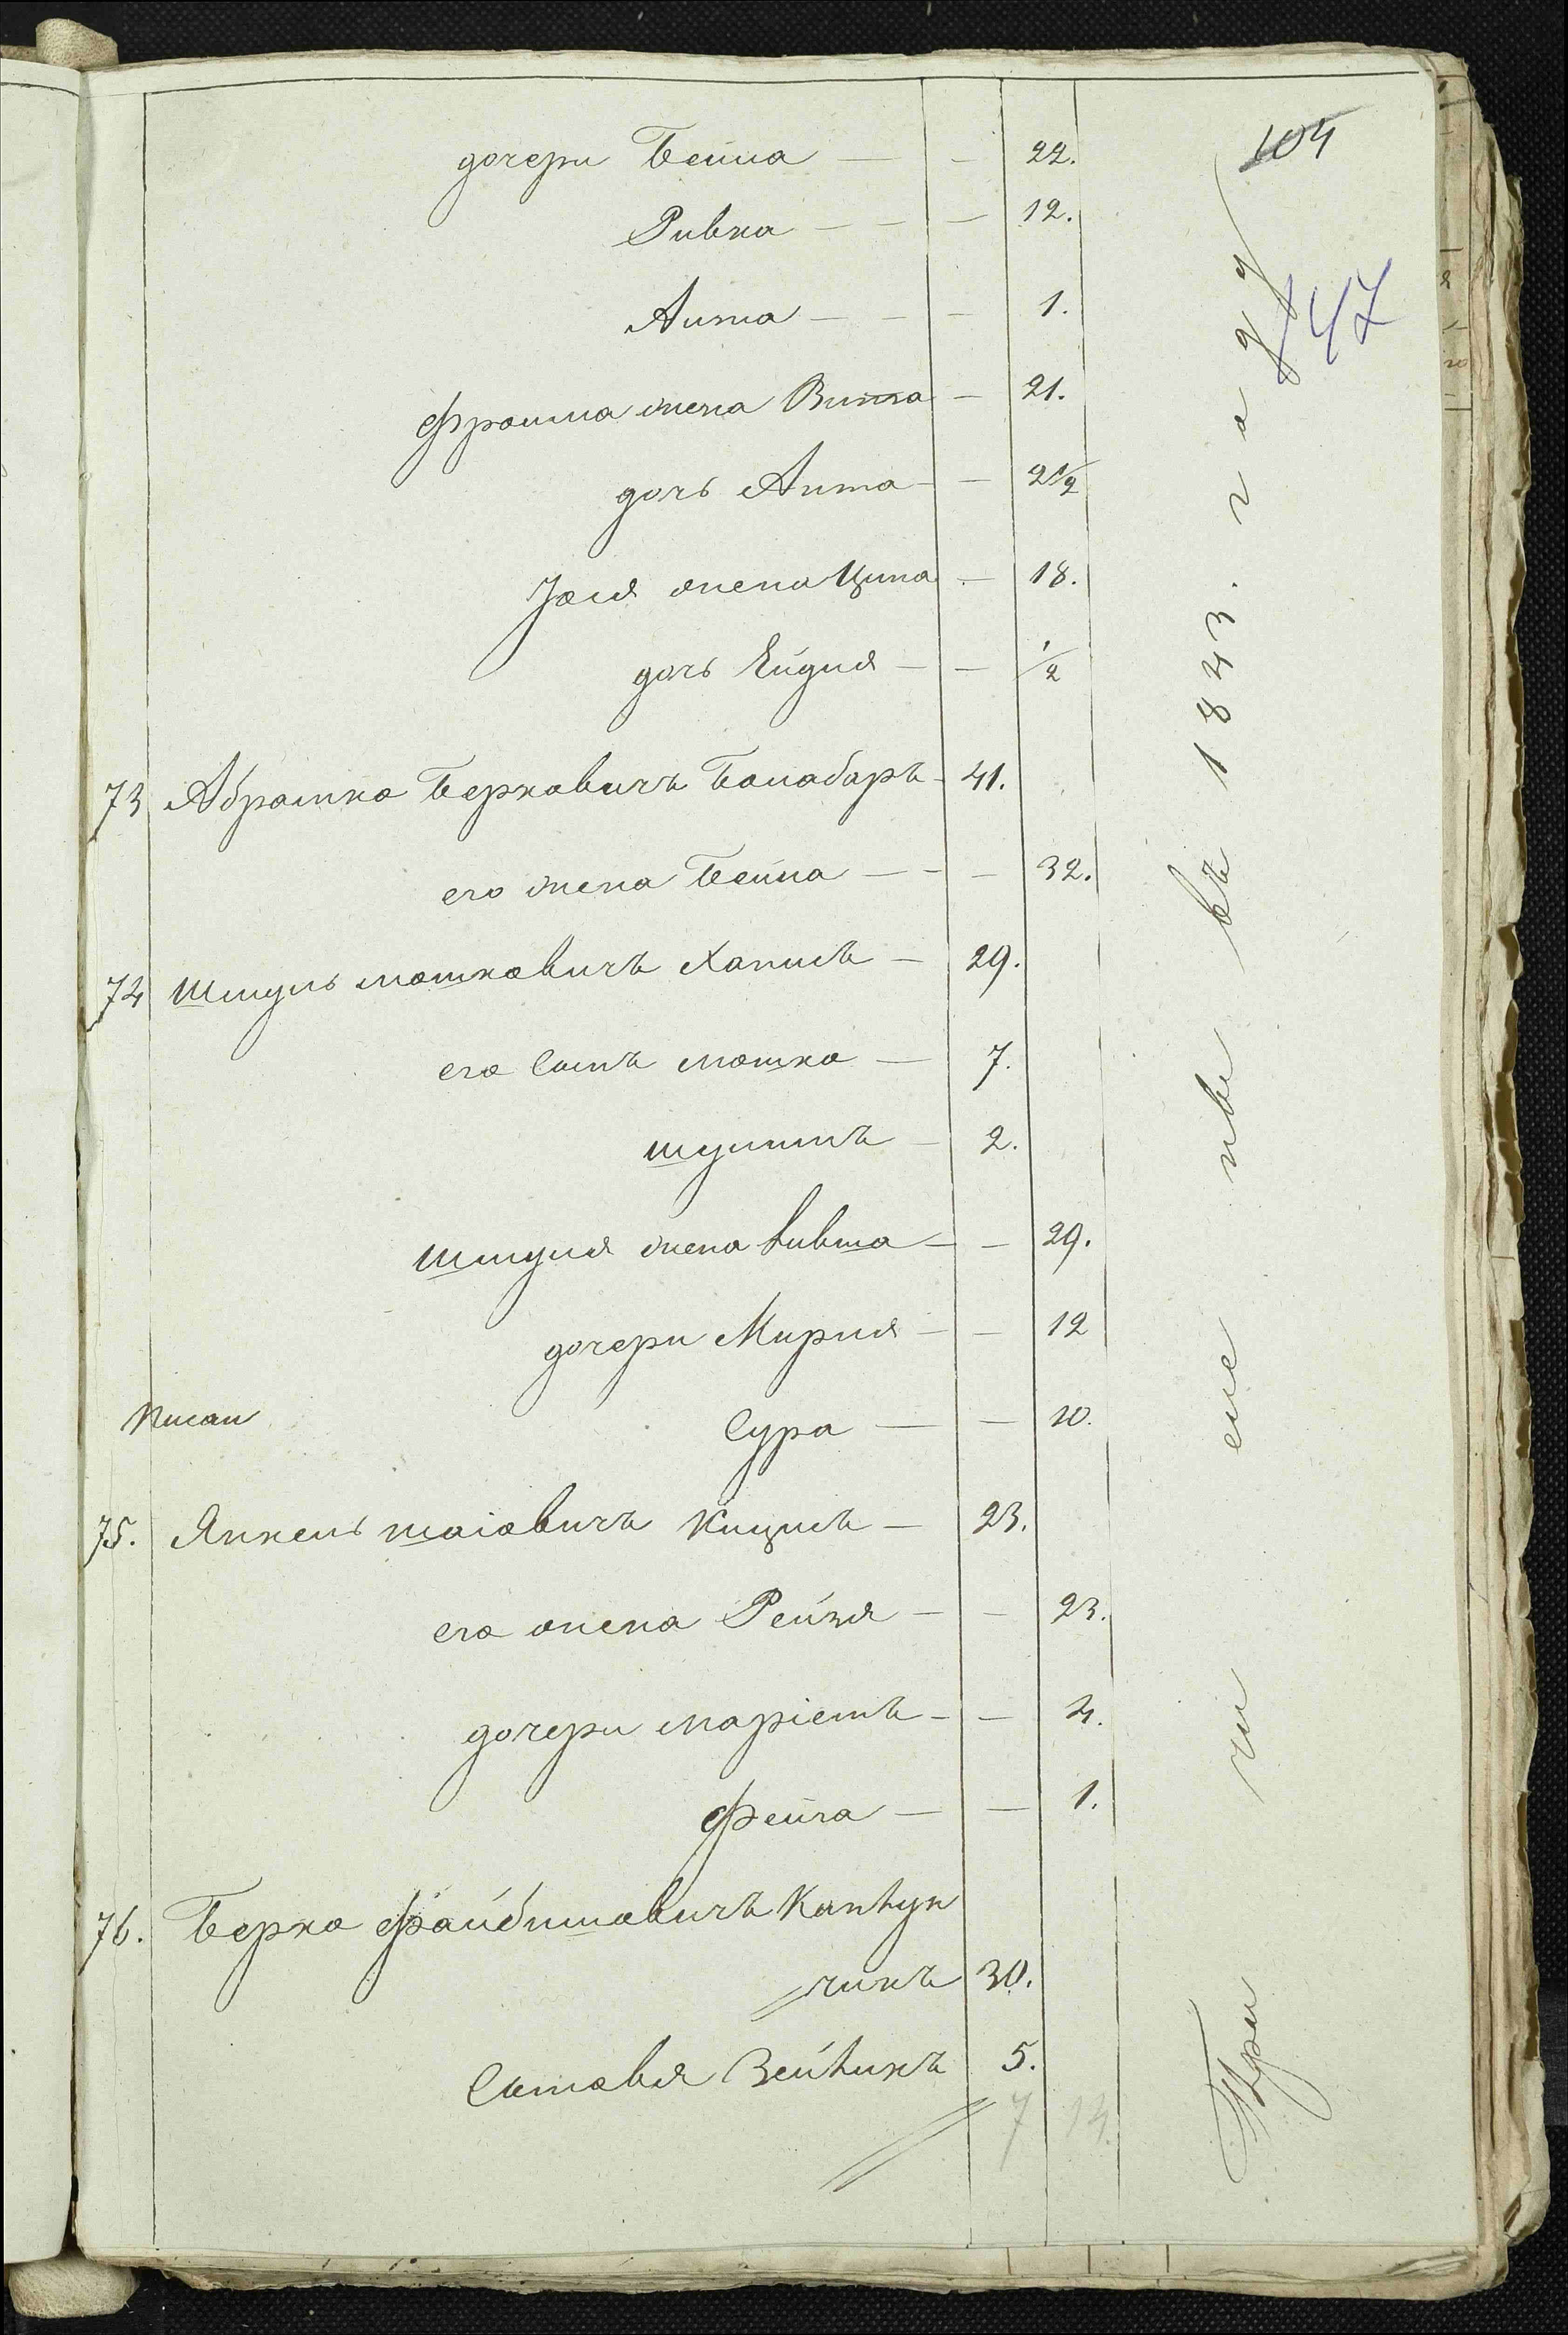 104
147
дочери Бейла — — 22.
Ривка — — — 12.
Аита — — — 1.
Фроима жена Витта — 21.
дочь Аита — — 2½
Іося жена Ципа — 18.
дочь Ейдля — — ½
73 Абрамко Берковичъ Балабаръ — 41.
его жена Бейла — — — 32.
74 Шмуль Мошковичъ Хапимъ — 29.
его сынъ Мошко — 7.
Шулимъ — 2.
Шмуля жена Ливша — — 29.
дочери Мирля — — 12
Писан
Сура — — 10.
75. Янкель Шаiовичъ Кицисъ — 23.
его жена Рейзя — — 23.
дочери Маріемъ — — 4.
Фейга — — 1.
76. Берко Файбишовичъ Капцун
чикъ 30.
Сыновья Зейликъ 5.
7 14.
При чи сле ны въ 1843. г а д у